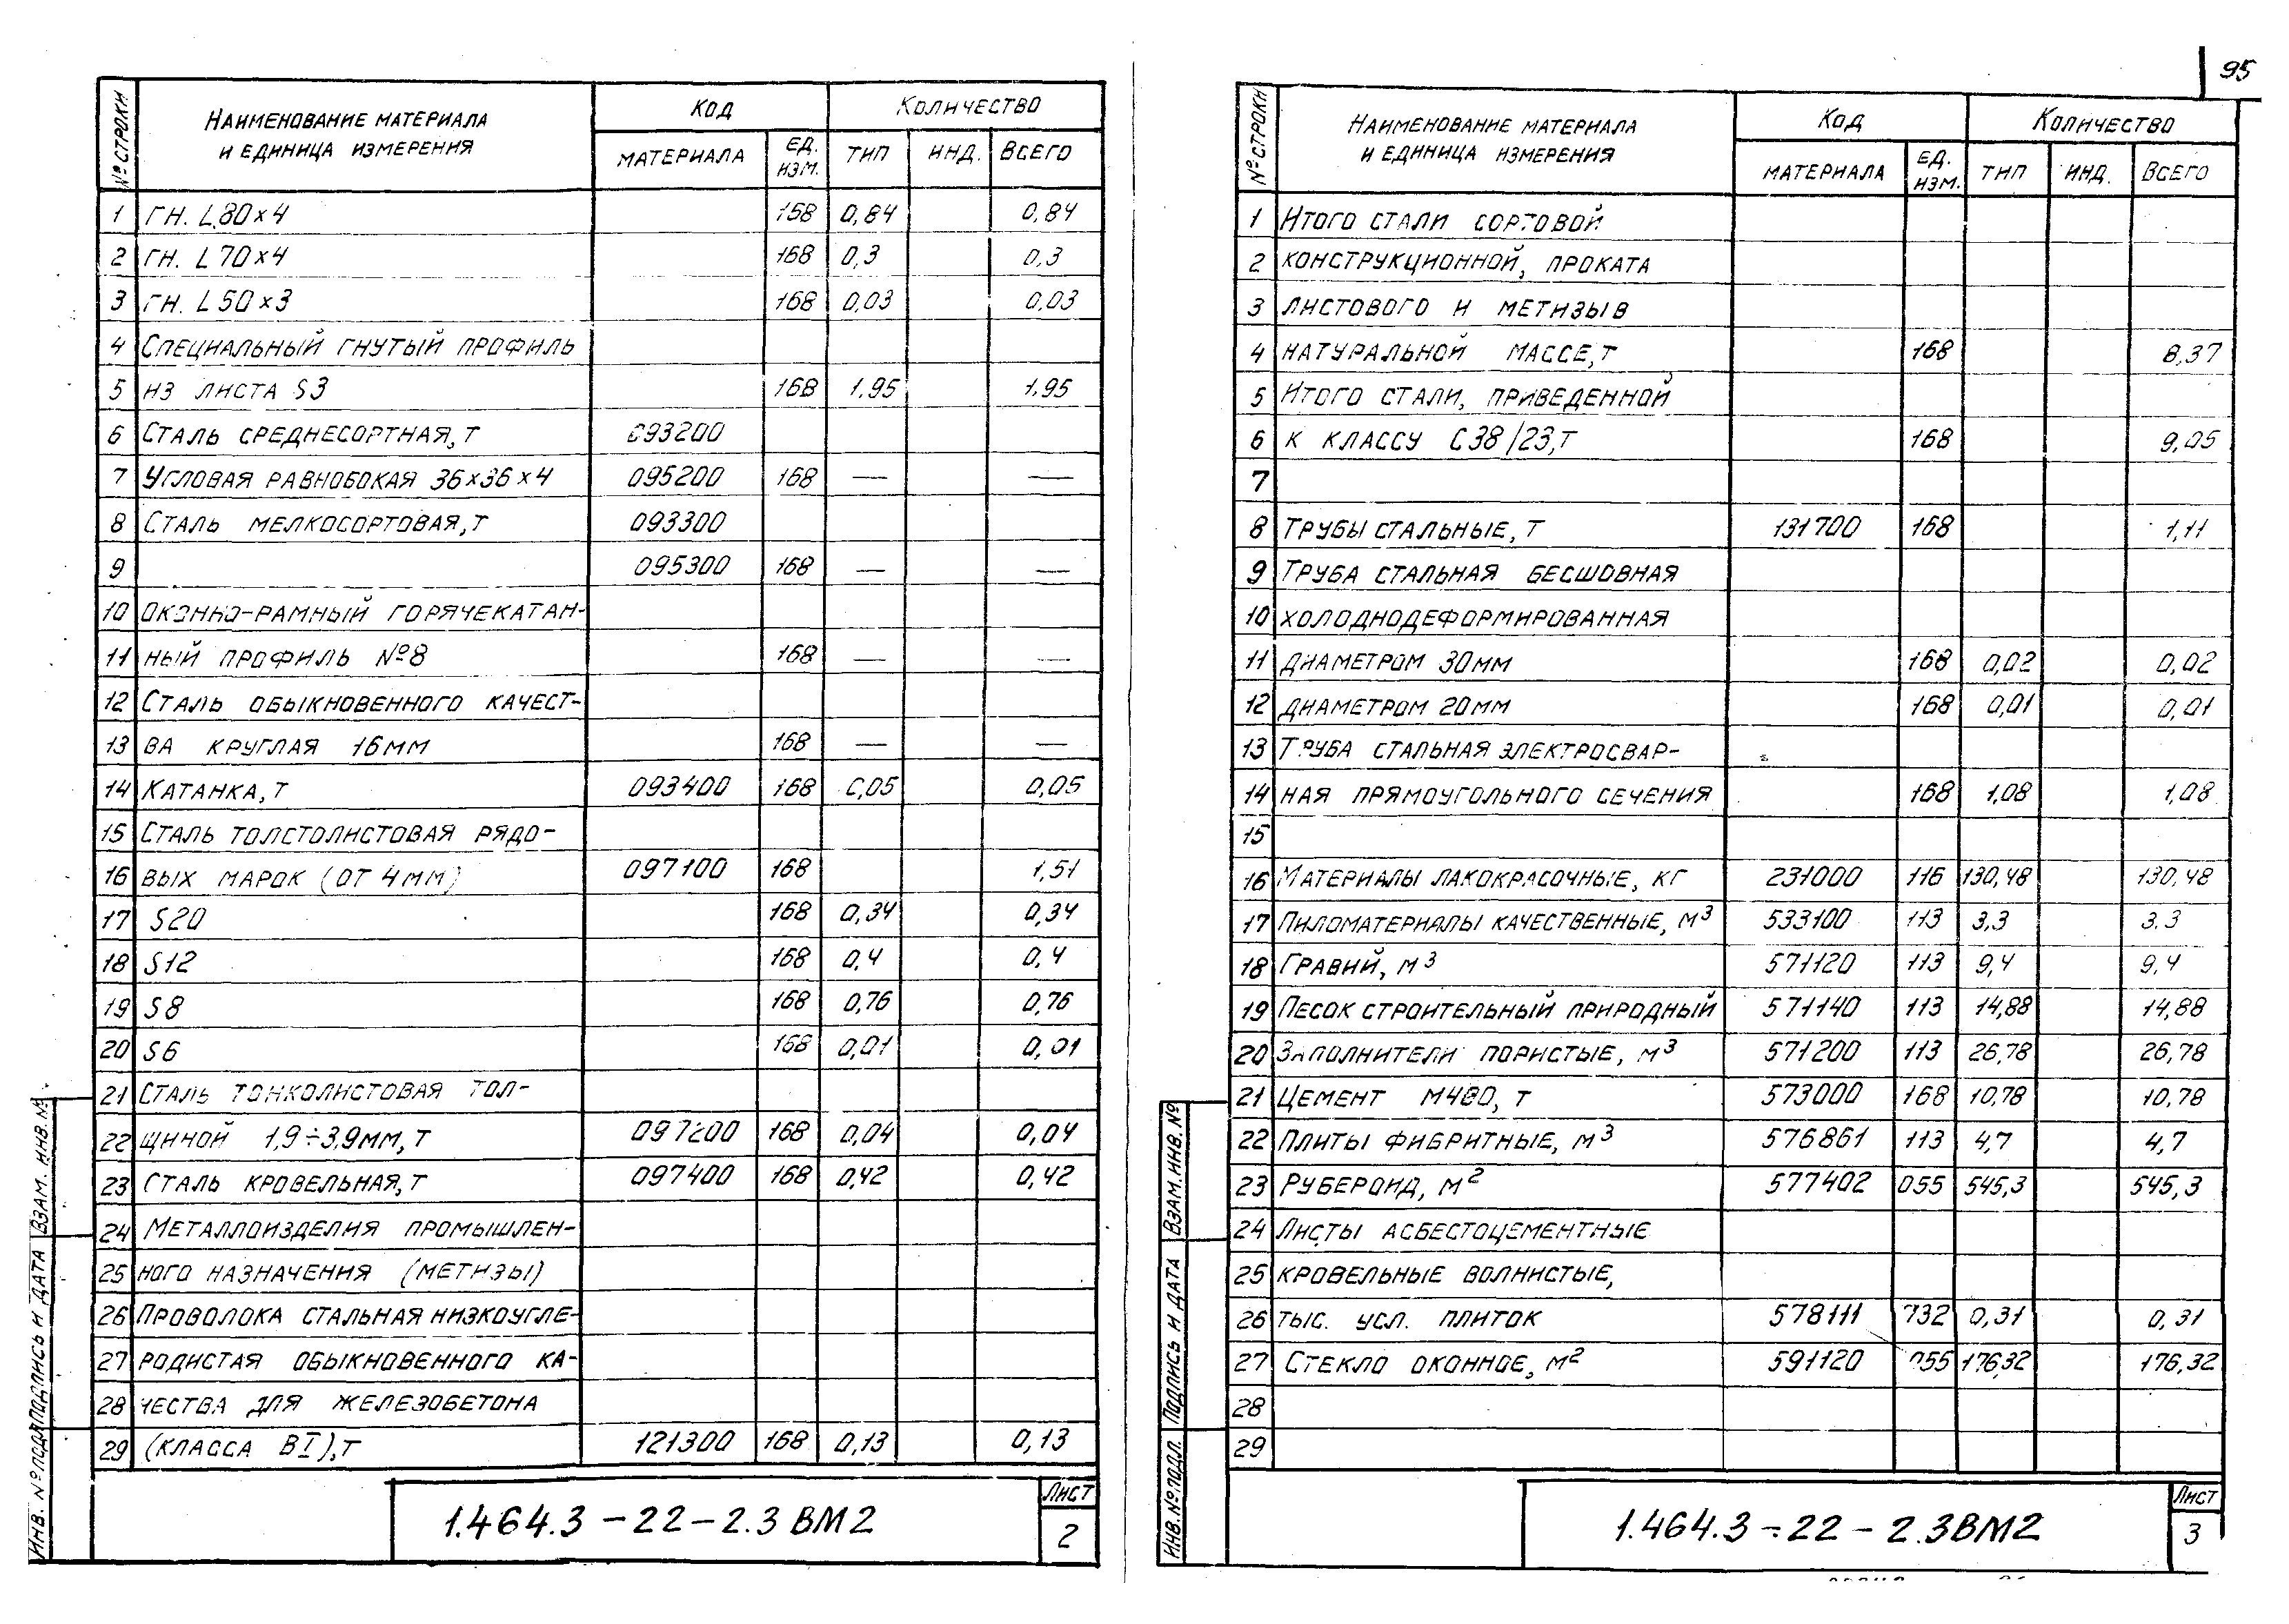 95
№ строки
Наименование материала
и единица измерения
Код
Количество
материала
ед. изм.
тип
инд.
Всего
1 гн. L 80×4 168 0,84 0,84
2 гн. L 70×4 168 0,3 0,3
3 гн. L 50×3 168 0,03 0,03
4 Специальный гнутый профиль
5 из листа S3 168 1,95 1,95
6 Сталь среднесортная, т 093200
7 Угловая равнобокая 36×36×4 095200 168 — —
8 Сталь мелкосортовая, т 093300
9 095300 168 — —
10 оконно-рамный горячекатан-
11 ный профиль №8 168 — —
12 Сталь обыкновенного качест-
13 ва круглая 16мм 168 — —
14 Катанка, т 093400 168 0,05 0,05
15 Сталь толстолистовая рядо-
16 вых марок (от 4мм) 097100 168 1,51
17 S20 168 0,34 0,34
18 S12 168 0,4 0,4
19 S8 168 0,76 0,76
20 S6 168 0,01 0,01
21 Сталь тонколистовая тол-
22 щиной 1,9÷3,9мм, т 097200 168 0,04 0,04
23 Сталь кровельная, т 097400 168 0,42 0,42
24 Металлоизделия промышлен-
25 ного назначения (метизы)
26 Проволока стальная низкоугле-
27 родистая обыкновенного ка-
28 чества для железобетона
29 (класса ВI), т 121300 168 0,13 0,13
Взам. инв. №
Подпись и дата
Инв. № подл.
1.464.3-22-2.3 ВМ2
Лист
2
№ строки
Наименование материала
и единица измерения
Код
Количество
материала
ед. изм.
тип
инд.
Всего
1 Итого стали сортовой
2 конструкционной, проката
3 листового и метизы в
4 натуральной массе, т 168 8,37
5 Итого стали, приведенной
6 к классу С38/23, т 168 9,05
7
8 Трубы стальные, т 131700 168 1,11
9 Труба стальная бесшовная
10 холоднодеформированная
11 диаметром 30мм 168 0,02 0,02
12 диаметром 20мм 168 0,01 0,01
13 Труба стальная электросвар-
14 ная прямоугольного сечения 168 1,08 1,08
15
16 Материалы лакокрасочные, кг 231000 116 130,48 130,48
17 Пиломатериалы качественные, м³ 533100 113 3,3 3,3
18 Гравий, м³ 571120 113 9,4 9,4
19 Песок строительный природный 571140 113 14,88 14,88
20 Заполнители пористые, м³ 571200 113 26,78 26,78
21 Цемент М400, т 573000 168 10,78 10,78
22 Плиты фибритные, м³ 576861 113 4,7 4,7
23 Рубероид, м² 577402 055 545,3 545,3
24 Листы асбестоцементные
25 кровельные волнистые,
26 тыс. усл. плиток 578111 732 0,31 0,31
27 Стекло оконное, м² 591120 055 176,32 176,32
28
29
Взам. инв. №
Подпись и дата
Инв. № подл.
1.464.3-22-2.3 ВМ2
Лист
3